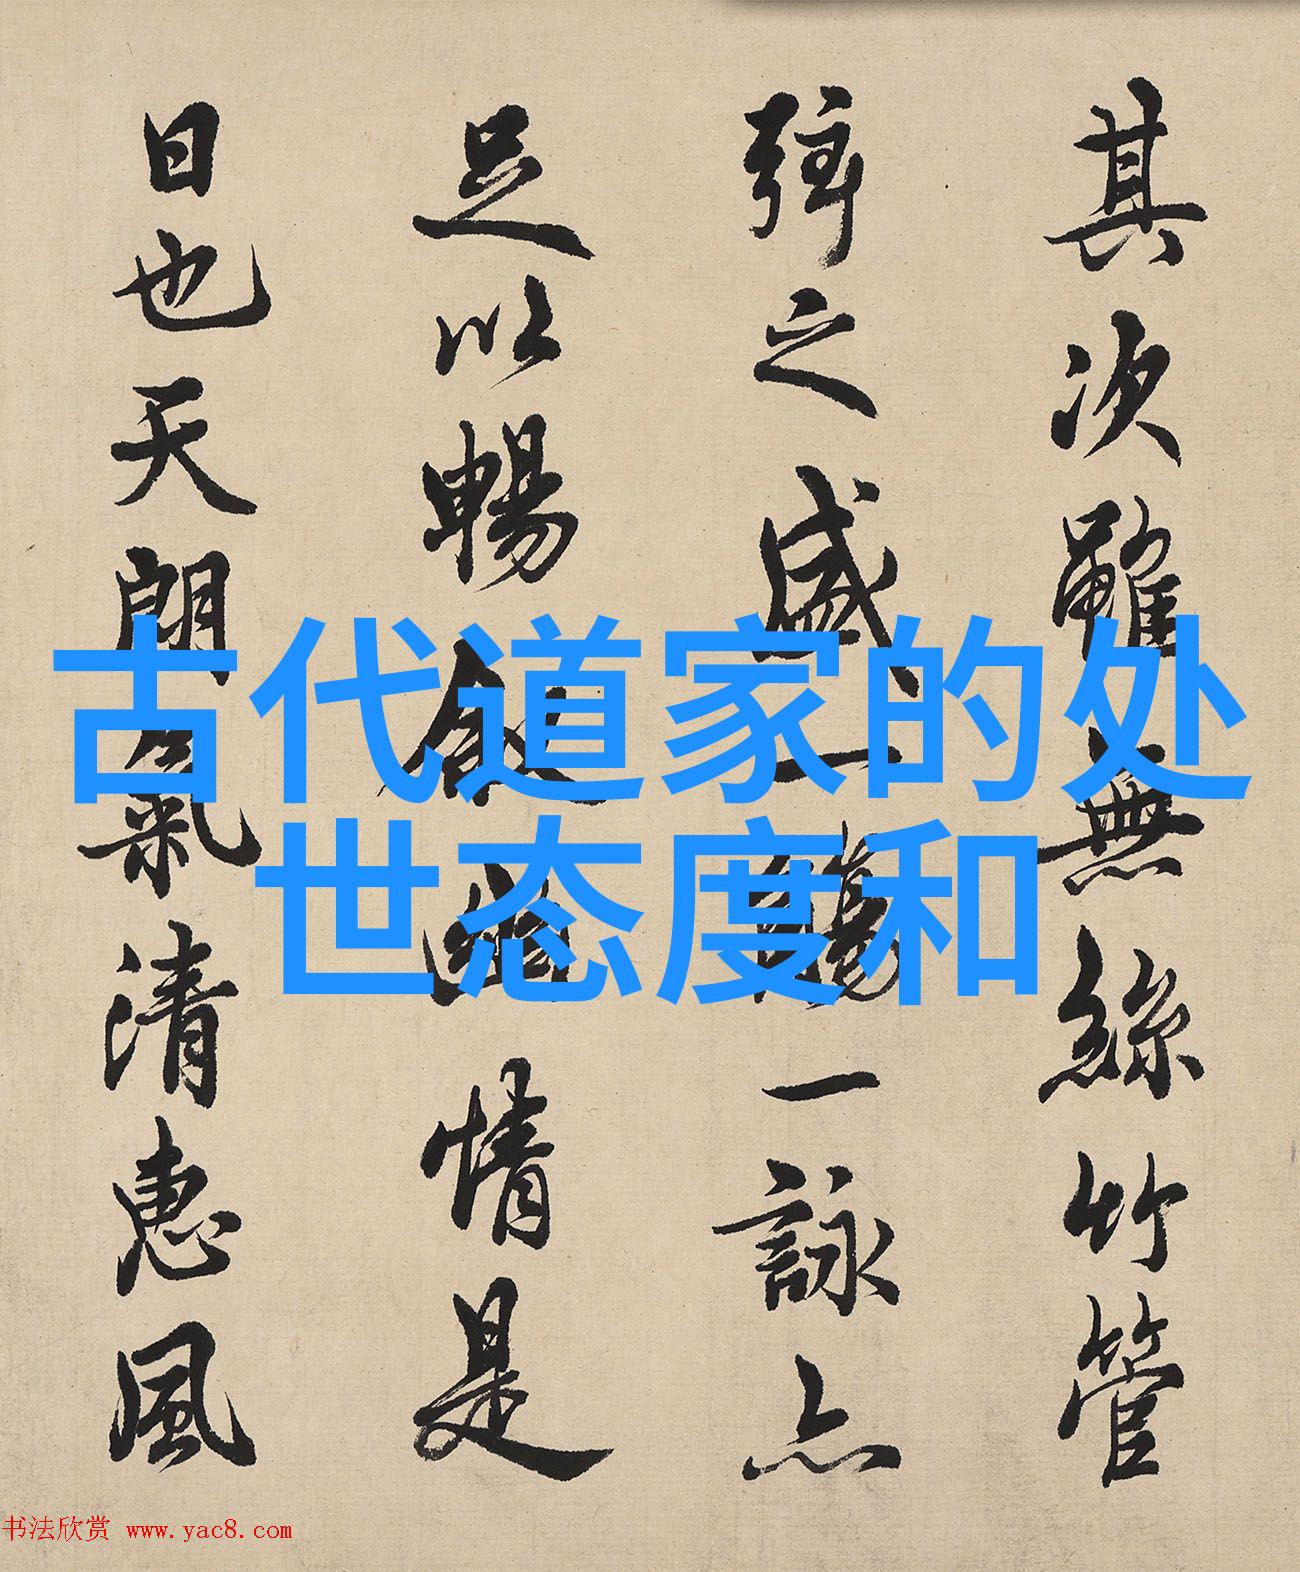 其次雖無絲竹管
弦之盛一觴一詠亦
足以暢敘幽情是
日也天朗氣清惠風
古代道家的处
世态度和
书法欣赏 www.yac8.com